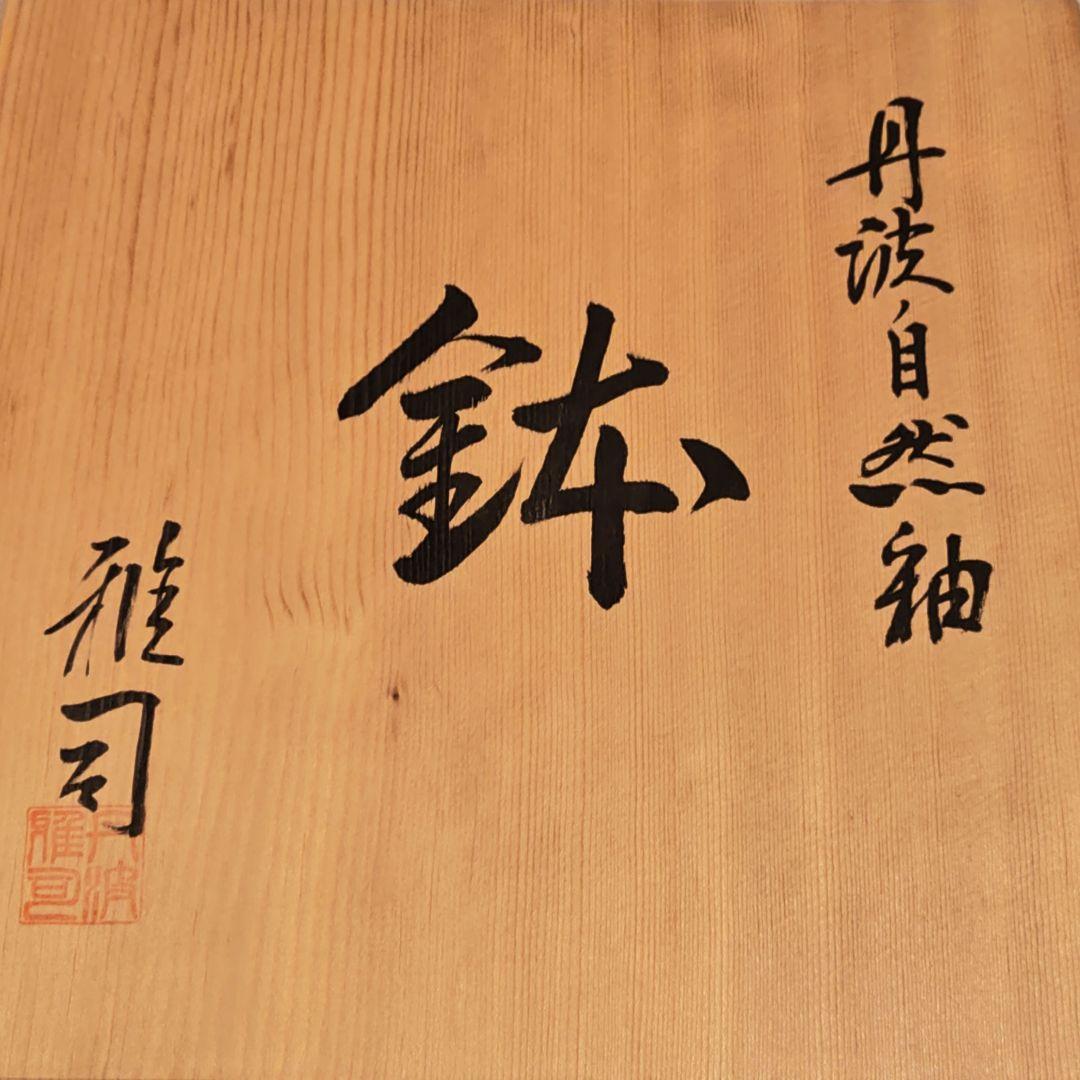 丹波自然釉
鉢
雅司
丹波
雅司